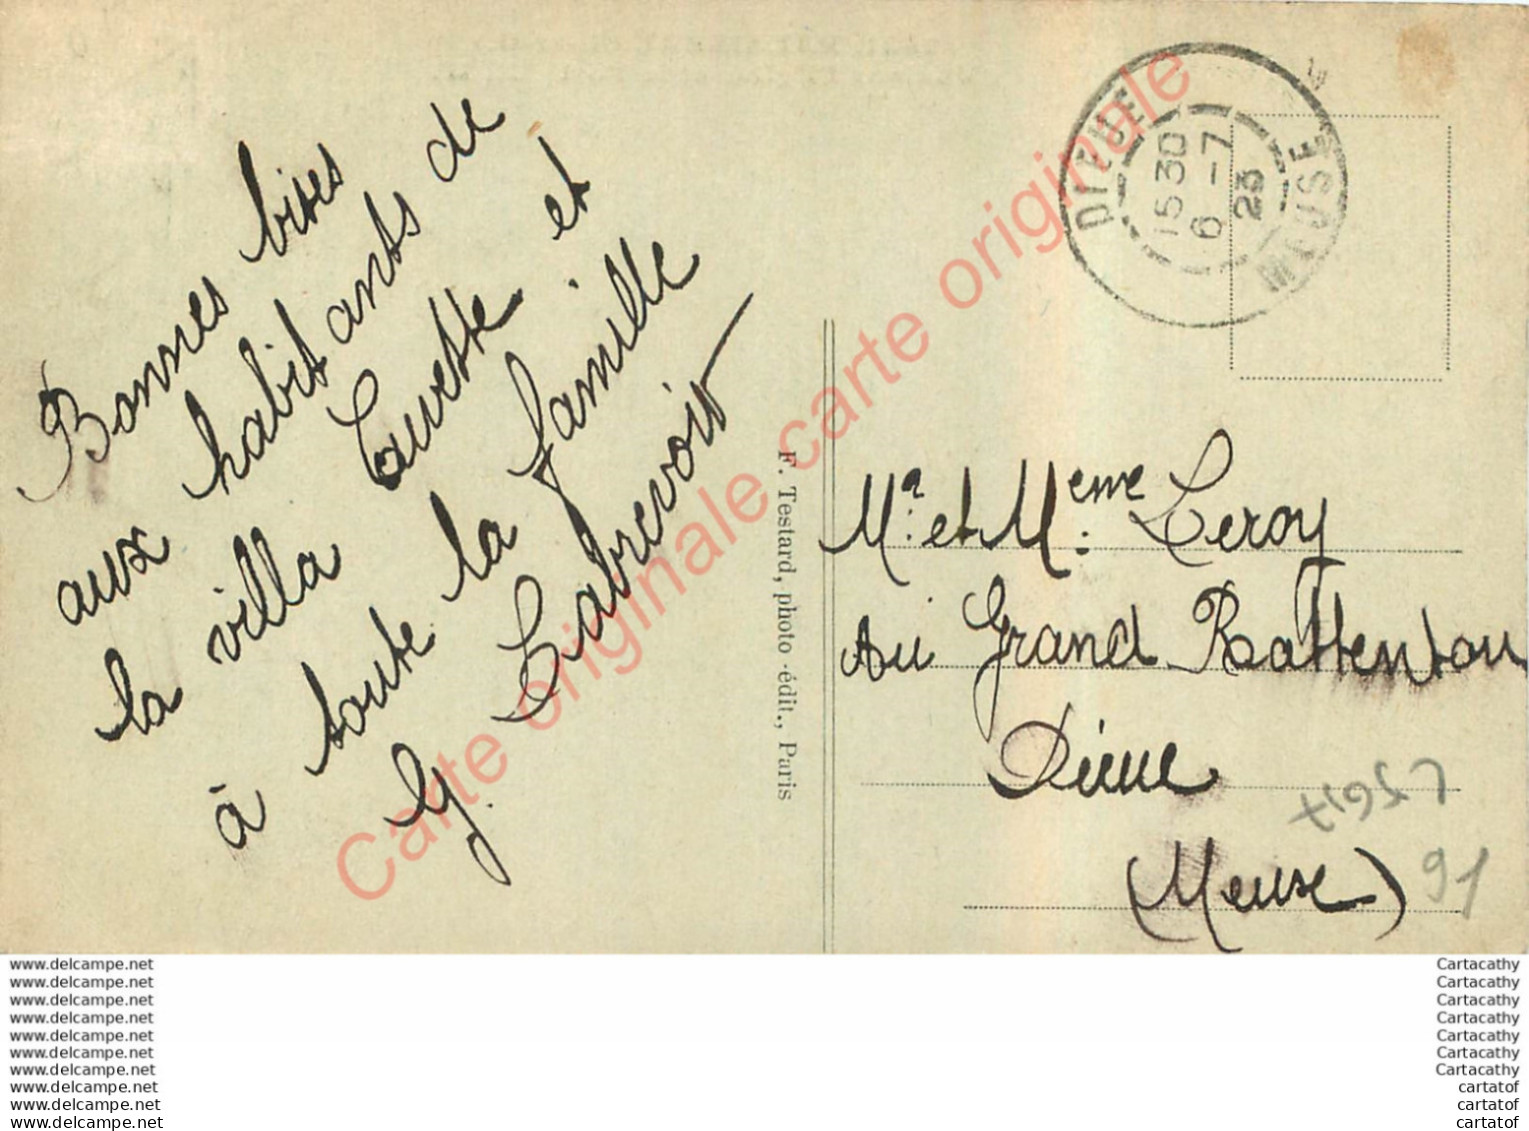 Bonnes bises
aux habitants de
la villa Lauvette et
à toute la famille
G. Cabrevoir
F. Testard, photo-édit., Paris
DIEUE
15 30
6 -7
23
MEUSE
Mr. et Mme: Leroy
Au Grand Rattentou
Dieue
(Meuse)
91
Carte originale carte originale
www.delcampe.net
www.delcampe.net
www.delcampe.net
www.delcampe.net
www.delcampe.net
www.delcampe.net
www.delcampe.net
www.delcampe.net
www.delcampe.net
www.delcampe.net
Cartacathy
Cartacathy
Cartacathy
Cartacathy
Cartacathy
Cartacathy
Cartacathy
cartatof
cartatof
cartatof